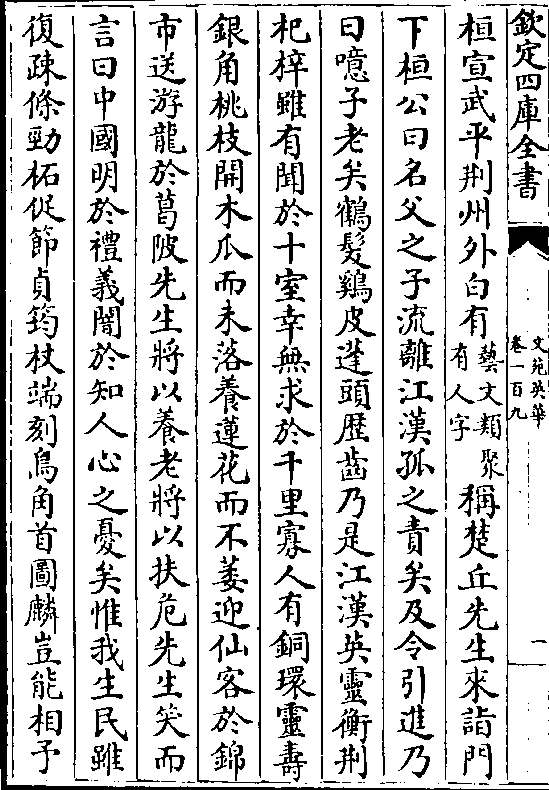 欽定四庫全書
文苑英華
卷一百九
一
桓宣武平荆州外白有藝文類聚有人字稱楚丘先生來詣門
下桓公曰名父之子流離江漢孤之責矣及令引進乃
曰噫子老矣鶴髮雞皮蓬頭歴齒乃是江漢英靈衡荆
杞梓雖有聞於十室幸無求於千里寡人有銅環靈壽
銀角桃枝開木瓜而未落養蓮花而不萎迎仙客於錦
市送游龍於葛陂先生將以養老將以扶危先生笑而
言曰中國明於禮義闇於知人心之憂矣惟我生民雖
復疎條勁柘促節貞筠杖端刻鳥角首圖麟豈能相予